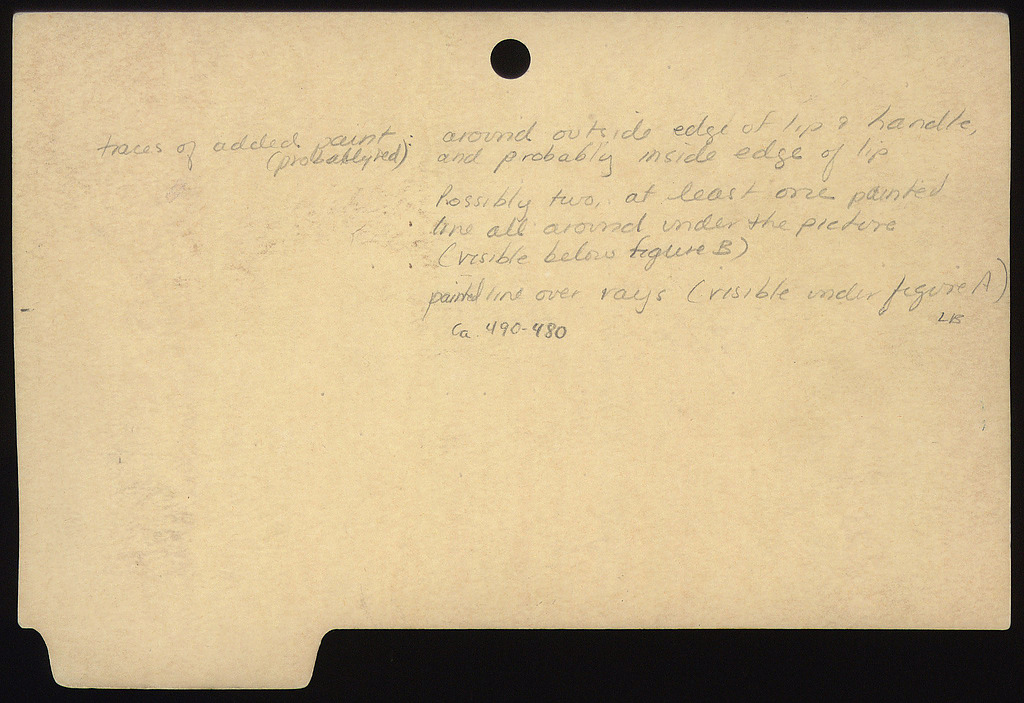 traces of added paint : around outside edge of lip & handle,
(probably red) and probably inside edge of lip
Possibly two, at least one painted
: line all around under the picture
(visible below figure B)
painted line over rays (visible under figure A)
LB
Ca. 490-480